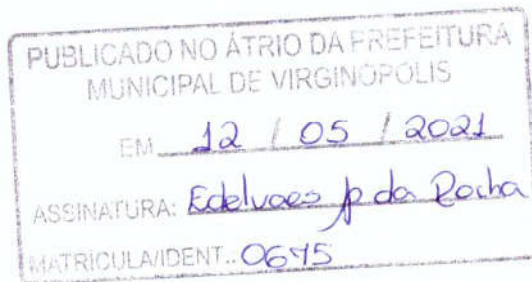 PUBLICADO NO ÁTRIO DA PREFEITURA
MUNICIPAL DE VIRGINÓPOLIS
EM 12 / 05 / 2021
ASSINATURA: Edelvaes p da Rocha
MATRÍCULA/IDENT.: 0675